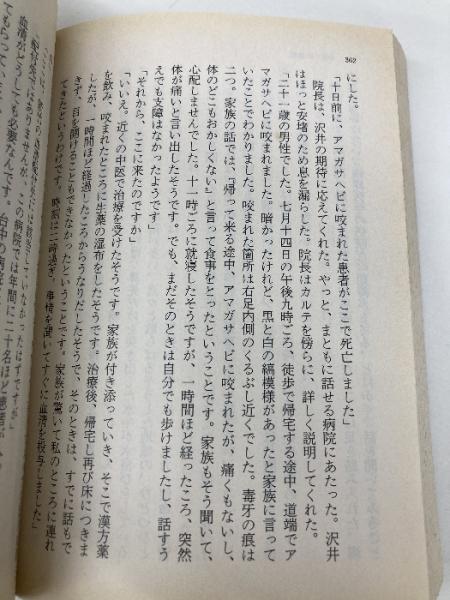 362
にした。
「十日前に、アマガサヘビに咬まれた患者がここで死亡しました」
院長は、沢井の期待に応えてくれた。やっと、まともに話せる病院にあたった。沢井
はほっと安堵のため息を漏らした。院長はカルテを傍らに、詳しく説明してくれた。
「二十一歳の男性でした。七月十四日の午後九時ごろ、徒歩で帰宅する途中、道端でア
マガサヘビに咬まれました。暗かったけれど、黒と白の縞模様があったと家族に言って
いたことでわかりました。咬まれた箇所は右足内側のくるぶし近くでした。毒牙の痕は
二つ。家族の話では、「帰って来る途中、アマガサヘビに咬まれたが、痛くもないし、
体のどこもおかしくない」と言って食事をとったということです。家族もそう聞いて、
心配しませんでした。十一時ごろに就寝したそうですが、一時間ほど経ったころ、突然
体が痛いと言い出したそうです。でも、まだそのときは自分でも歩けましたし、話すう
えでも支障はなかったようです」
「それから、ここに来たのですか」
「いいえ。近くの中医で治療を受けたそうです。家族が付き添っていき、そこで漢方薬
を飲み、咬まれたところに生薬の湿布をしたそうです。治療後、帰宅し再び床につきま
したが、一時間ほど経過したころからうなりだしたそうで、そのときは、すでに話もで
きず、目を開けることもできなかったということです。家族が驚いて私のところに連れ
てきたというわけです。時刻は二時過ぎ、事情を聞いてすぐに血清を投与しました」